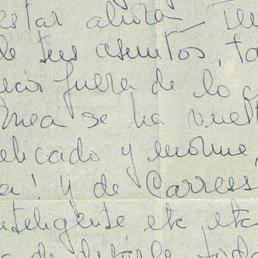 estar ahora
de tus asuntos, ta
fuera de lo c
nea se ha vuelt
elicado y enorme,
a! y de Carress
nteligente etc etc